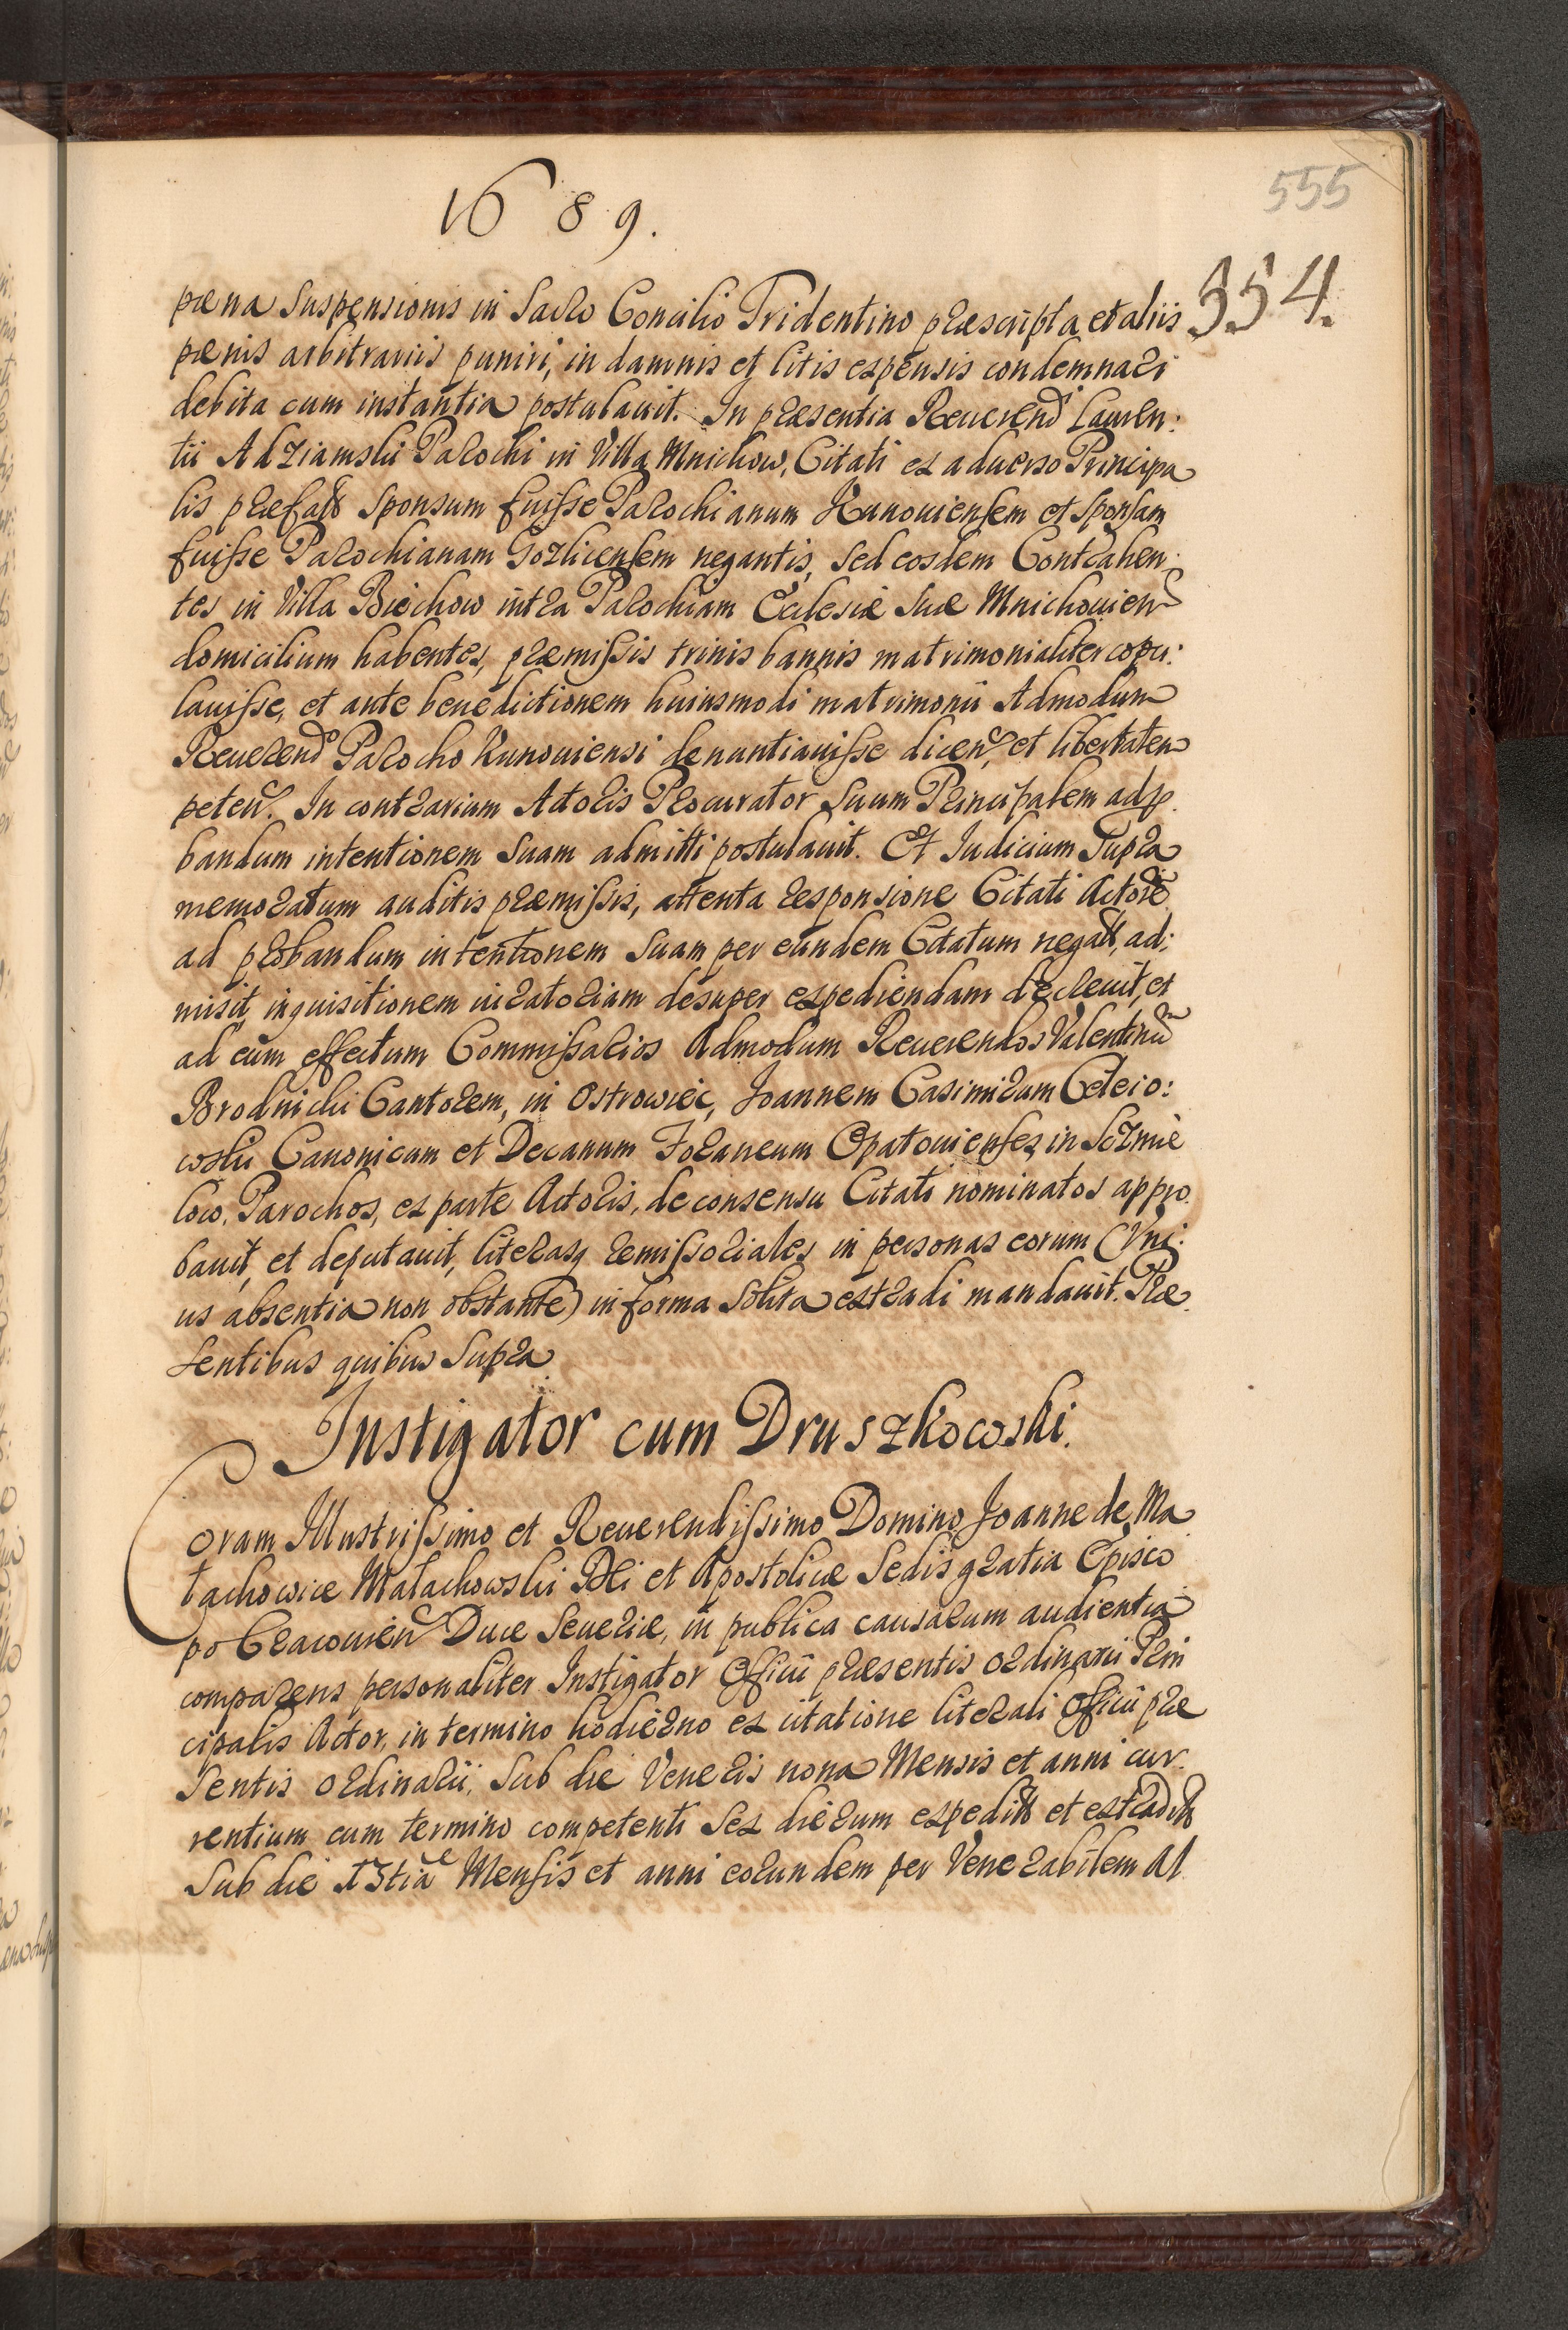 555
1689.
554.
pœna Suspensionis in Sacro Concilio Tridentino præscripta et aliis
pœnis arbitrariis puniri, in damnis et litis expensis condemnari
debita cum instantia postulauit. In præsentia Reuerend Lauren:
tii Adziamski Parochi in Villa Mnichow, Citati ex aduerso Principa
lis præfatt Sponsum fuisse Parochianum Kunouiensem et Sponsam
fuisse Parochianam Gozlicensem negantis, Sed eosdem Contrahen:
tes in Villa Biechow intra Parochiam Ecclesiæ Suæ Mnichouien
domicilium habentes, præmissis trinis bannis matrimonialiter copu:
lauisse, et ante benedictionem huiusmodi matrimonii Admodum
Reuerendo Parocho Kunouiensi denuntiauisse dicen, et libertatem
peten. In contrarium Actoris Procurator Suum Principalem ad p
bandum intentionem Suam admitti postulauit. Et Iudicium Supra
memoratum auditis præmissis, attenta responsione Citati Actorē
ad probandum intentionem Suam per eundem Citatum negatt, ad:
misit, inquisitionem iuratoriam desuper expediendam decreuit, et
ad eum effectum Commissarios Admodum Reuerendos Valentinū
Brodnicki Cantorem, in Ostrowiec, Joannem Casimirum
coski Canonicum et Decanum Foraneum Opatouienses, in
loco. Parochos, ex parte Actoris, de consensu Citati nominatos appro
bauit, et deputauit, literasq remissoriales in personas eorum (Vni:
us absentia non obstante) in forma Solita extradi mandauit. Præ
sentibus quibus Supra
Instigator cum Druszkowski.
Coram Illustrissimo et Reuerendissimo Domino Joanne de Ma
łachowice Małachowski Dei et Apostolicæ Sedis gratia Episco
po Cracouien Duce Seueriæ, in publica causarum audientia
comparens personaliter Instigator Officii præsentis ordinarii Prin
cipalis Actor, in termino hodierno ex citatione literali Officii præ
sentis ordinarii, Sub die Veneris nona Mensis et anni cur:
rentium cum termino competenti Sex dierum expeditt et extradit
Sub die 13tia Mensis et anni eorundem per Venerabilem Al